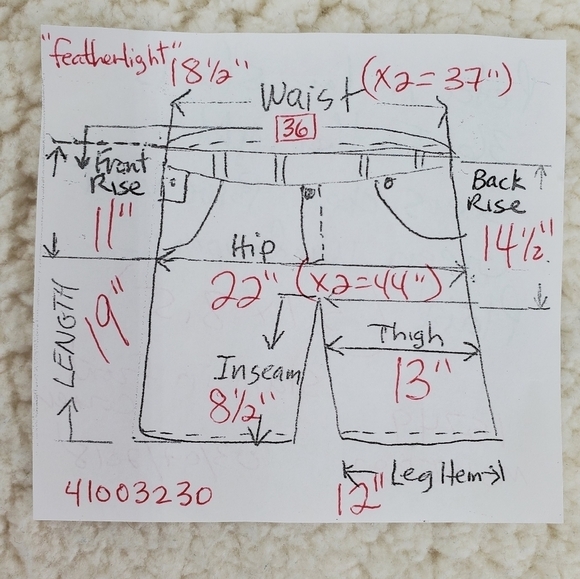 "featherlight"
18 1/2"
(x2=37")
Waist
36
Front
Rise
11"
Back
Rise
14 1/2"
Hip
22" (x2=44")
LENGTH
19"
Thigh
13"
Inseam
8 1/2"
Leg Hem
12"
41003230